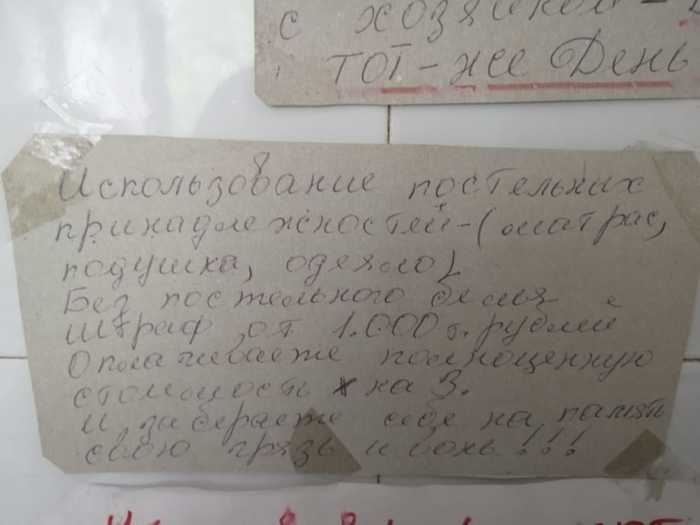 с хозяином -
тот-же День
Использование постельних
принадлежностей-(матрас,
подушка, одеяло)
Без постельного белья
штраф от 1.000 т. рублей
Оплачиваете полноценную
стоимость х на 3.
и забераете себе на память
свою грязь и вонь!!!